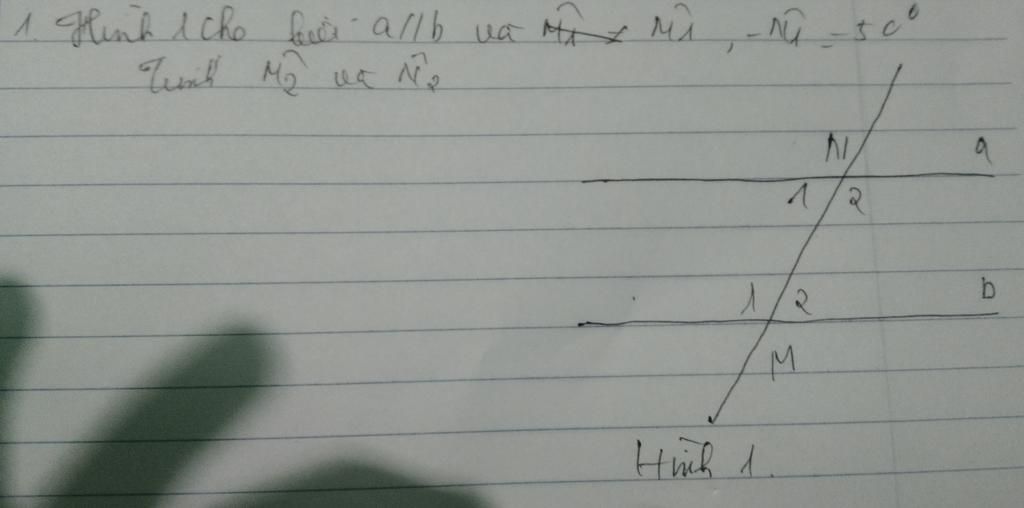 1. Hình 1 cho a//b và M̂1 - N̂1 = 50°
Tính M̂2 và N̂2
N a
1 2
1 2 b
M
Hình 1.